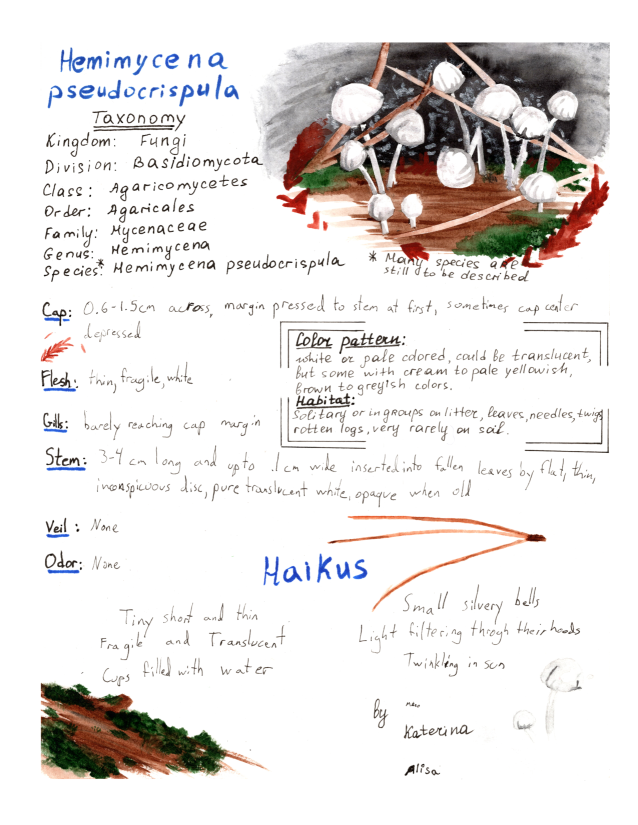 Hemimycena
pseudocrispula
Taxonomy
Kingdom: Fungi
Division: Basidiomycota
Class: Agaricomycetes
Order: Agaricales
Family: Mycenaceae
Genus: Hemimycena
Species*: Hemimycena pseudocrispula
* Many species are
still to be described
Cap: 0.6-1.5cm across, margin pressed to stem at first, sometimes cap center
depressed
Color pattern:
white or pale colored, could be translucent,
but some with cream to pale yellowish,
brown to greyish colors.
Habitat:
Solitary or in groups on litter, leaves, needles, twigs
rotten logs, very rarely on soil.
Flesh: thin, fragile, white
Gills: barely reaching cap margin
Stem: 3-4 cm long and up to .1cm wide inserted into fallen leaves by flat, thin,
inconspicuous disc, pure translucent white, opaque when old
Veil: None
Odor: None
Haikus
Tiny short and thin
Fragile and Translucent
Cups filled with water
Small silvery bells
Light filtering throgh their hoods
Twinkling in sun
by
Katerina
Alisa